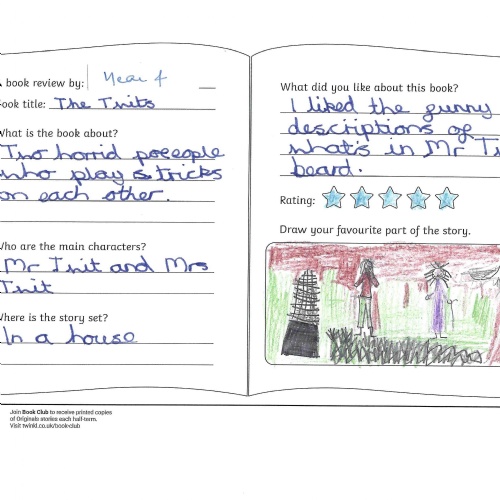 book review by: Year 4
Book title: The Twits
What is the book about?
Two horrid poeeople
who play s tricks
on each other.
Who are the main characters?
Mr Twit and Mrs
Twit
Where is the story set?
In a house
Join Book Club to receive printed copies
of Originals stories each half-term.
Visit twinkl.co.uk/book-club
What did you like about this book?
I liked the funny
descriptions of
what's in Mr Tw
beard.
Rating:
Draw your favourite part of the story.